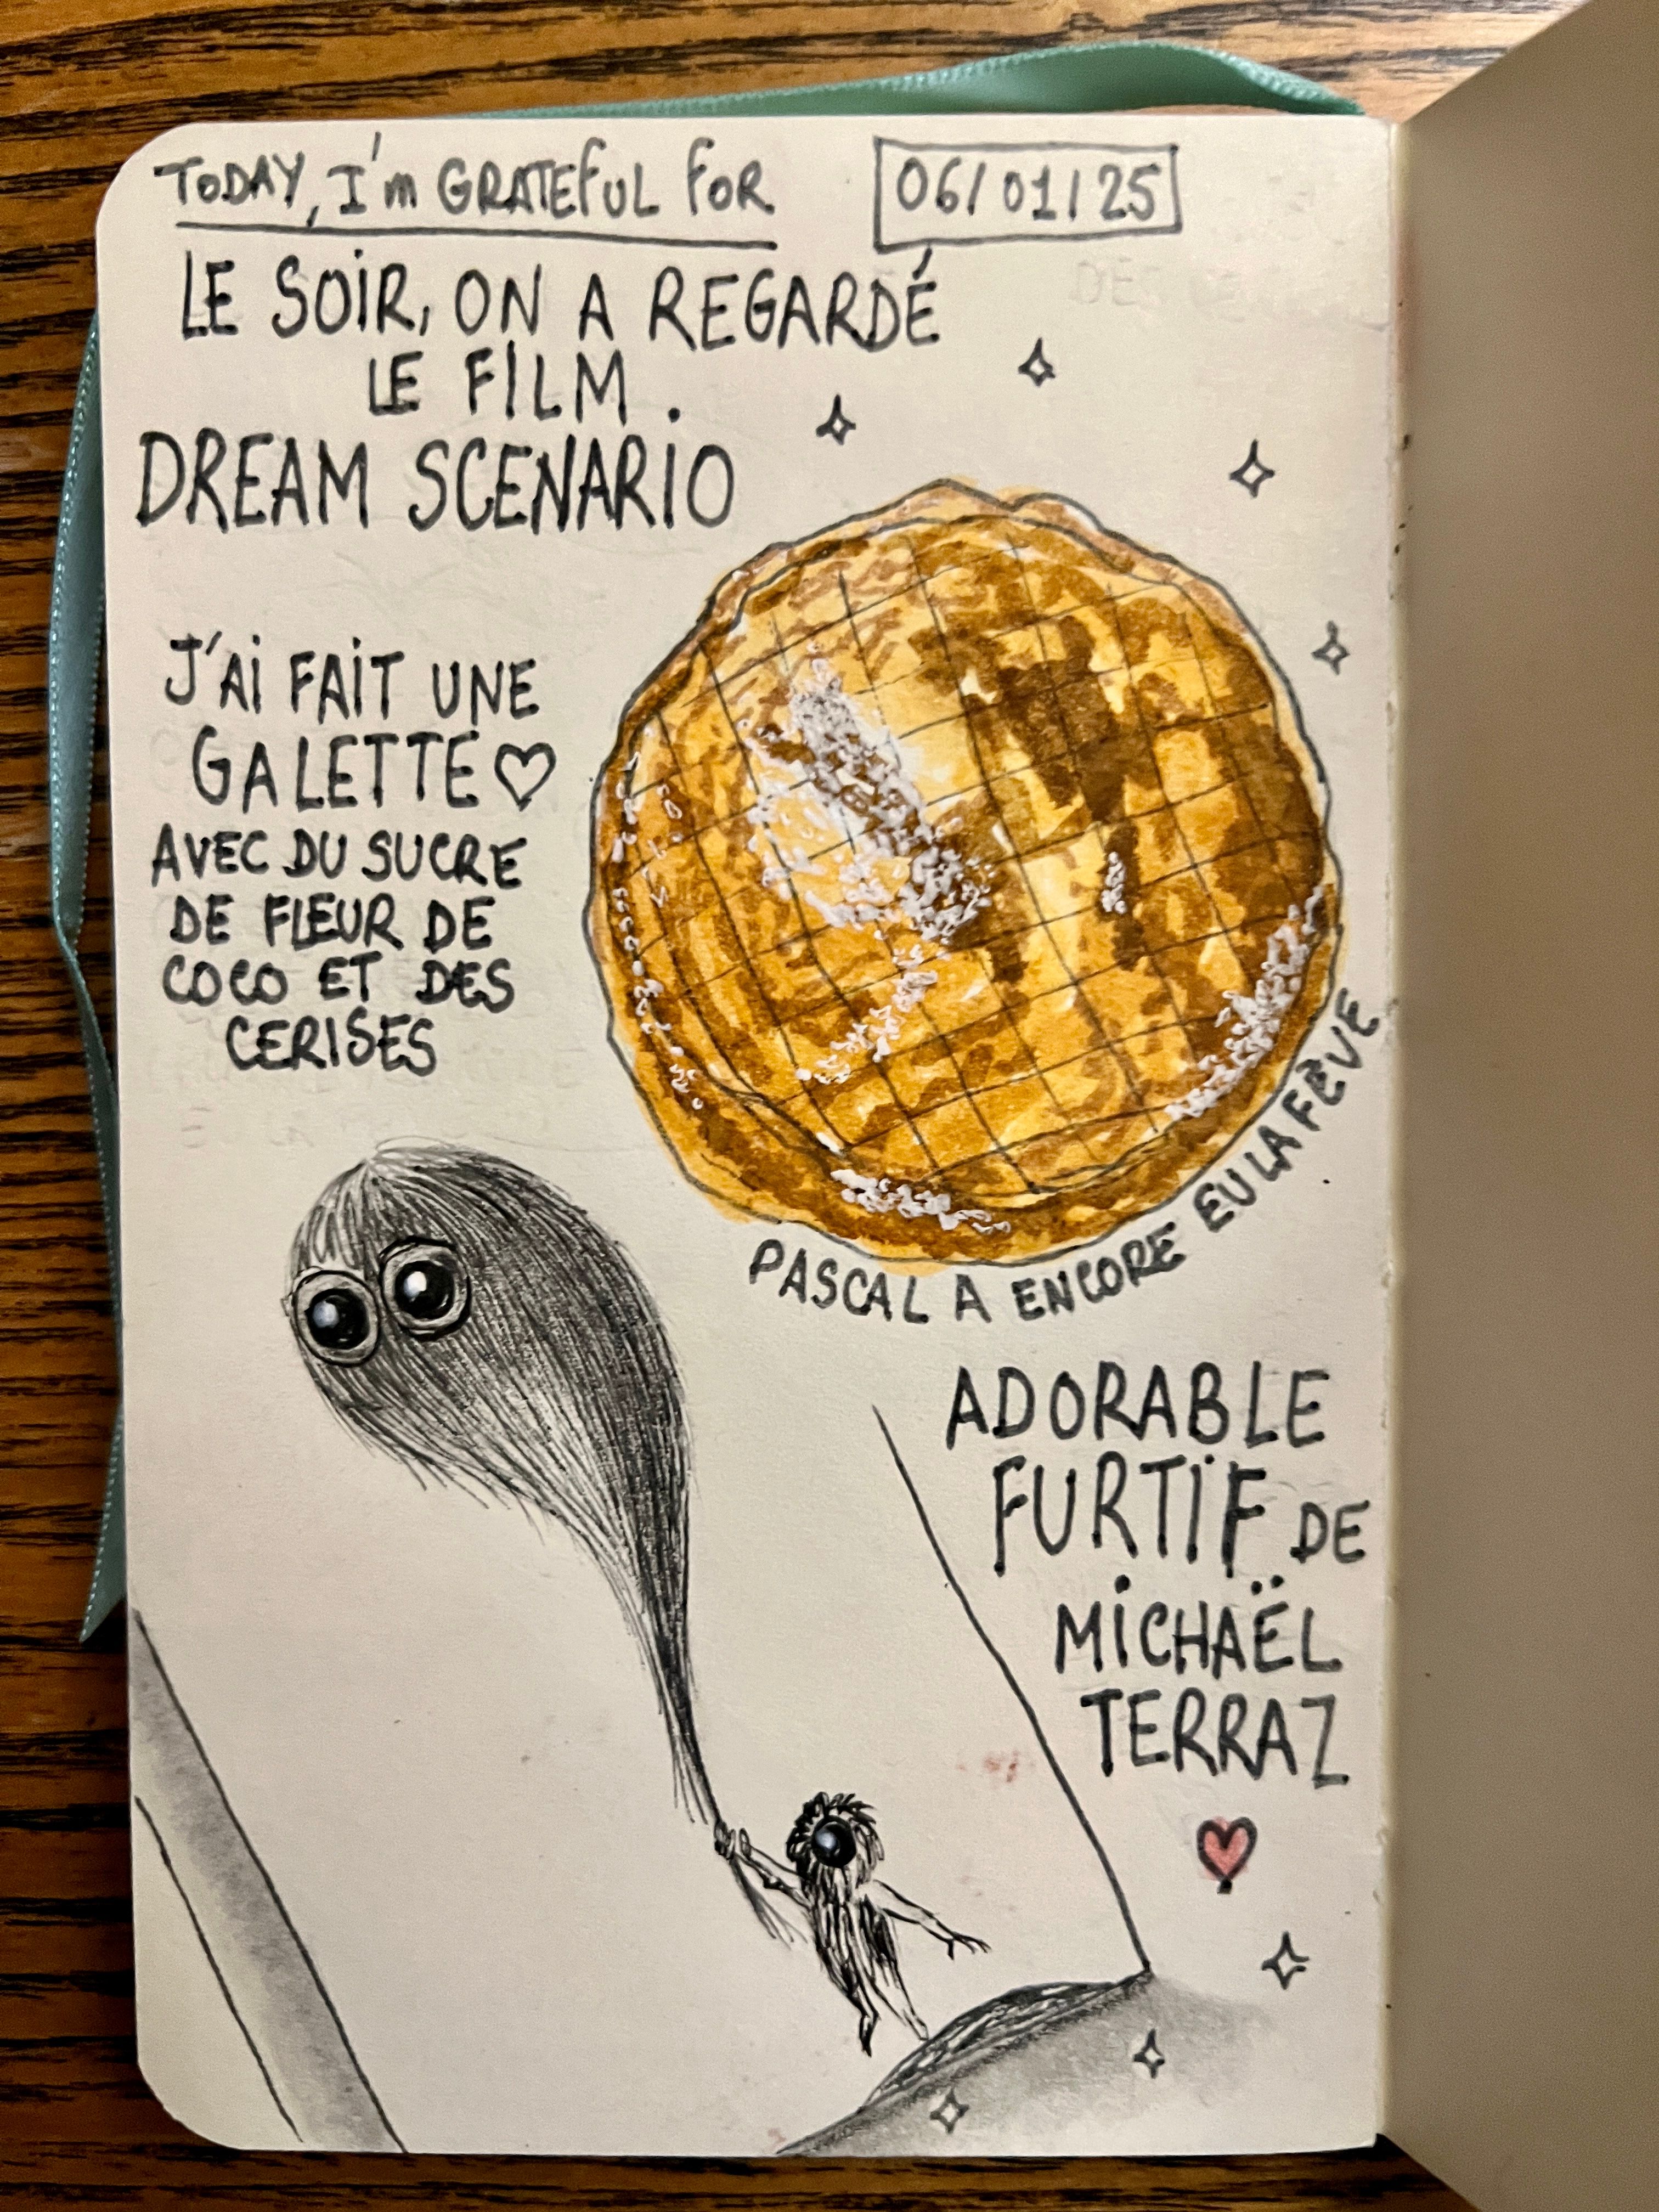 TODAY, I'm GRATEFUL FOR
06/01/25
LE SOIR, ON A REGARDÉ
LE FILM.
DREAM SCENARIO
J'AI FAIT UNE
GALETTE♡
AVEC DU SUCRE
DE FLEUR DE
COCO ET DES
CERISES
PASCAL A ENCORE EU LA FÈVE
ADORABLE
FURTIF DE
MICHAËL
TERRAZ